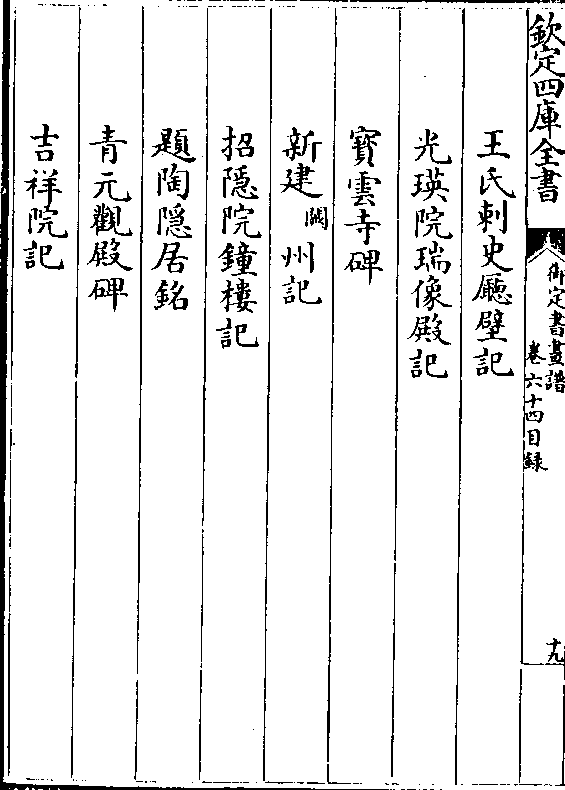 欽定四庫全書
御定書畫譜
卷六十四目錄
十九
王氏刺史廳壁記
光瑛院瑞像殿記
寶雲寺碑
新建闕州記
招隱院鐘樓記
題陶隱居銘
青元觀殿碑
吉祥院記